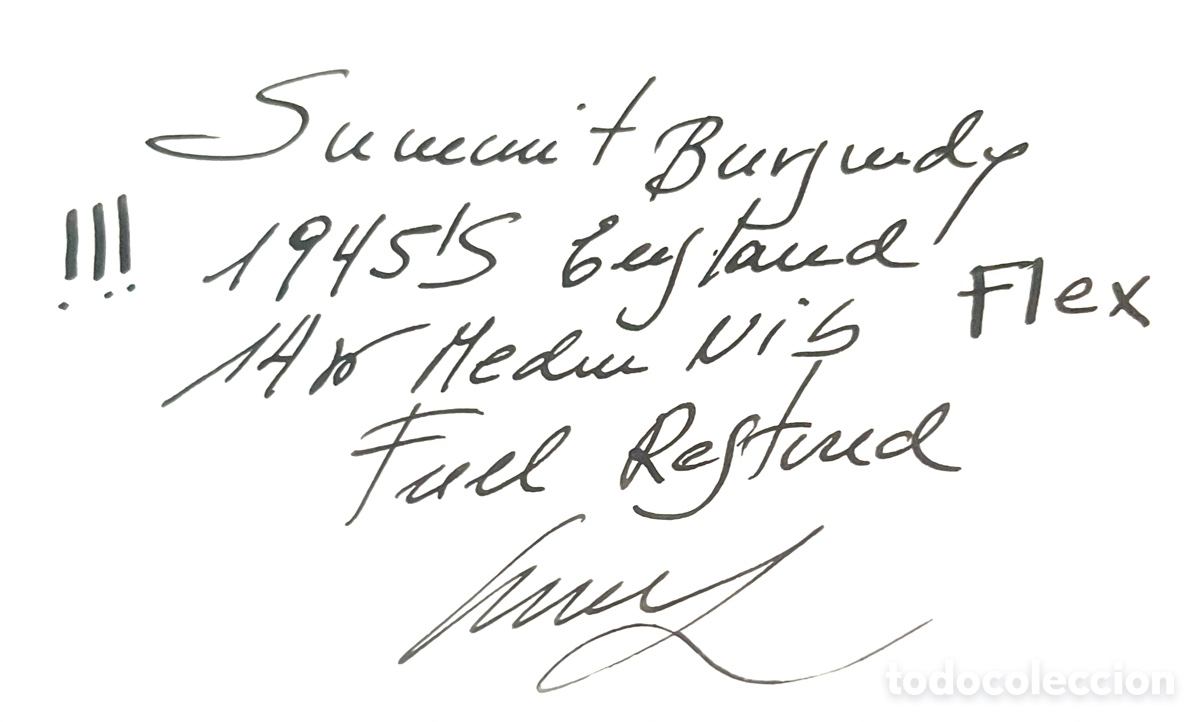 Summit Burgundy
!!! 1945's England
Flex
14K Medium Nib
Full Restored
todocoleccion